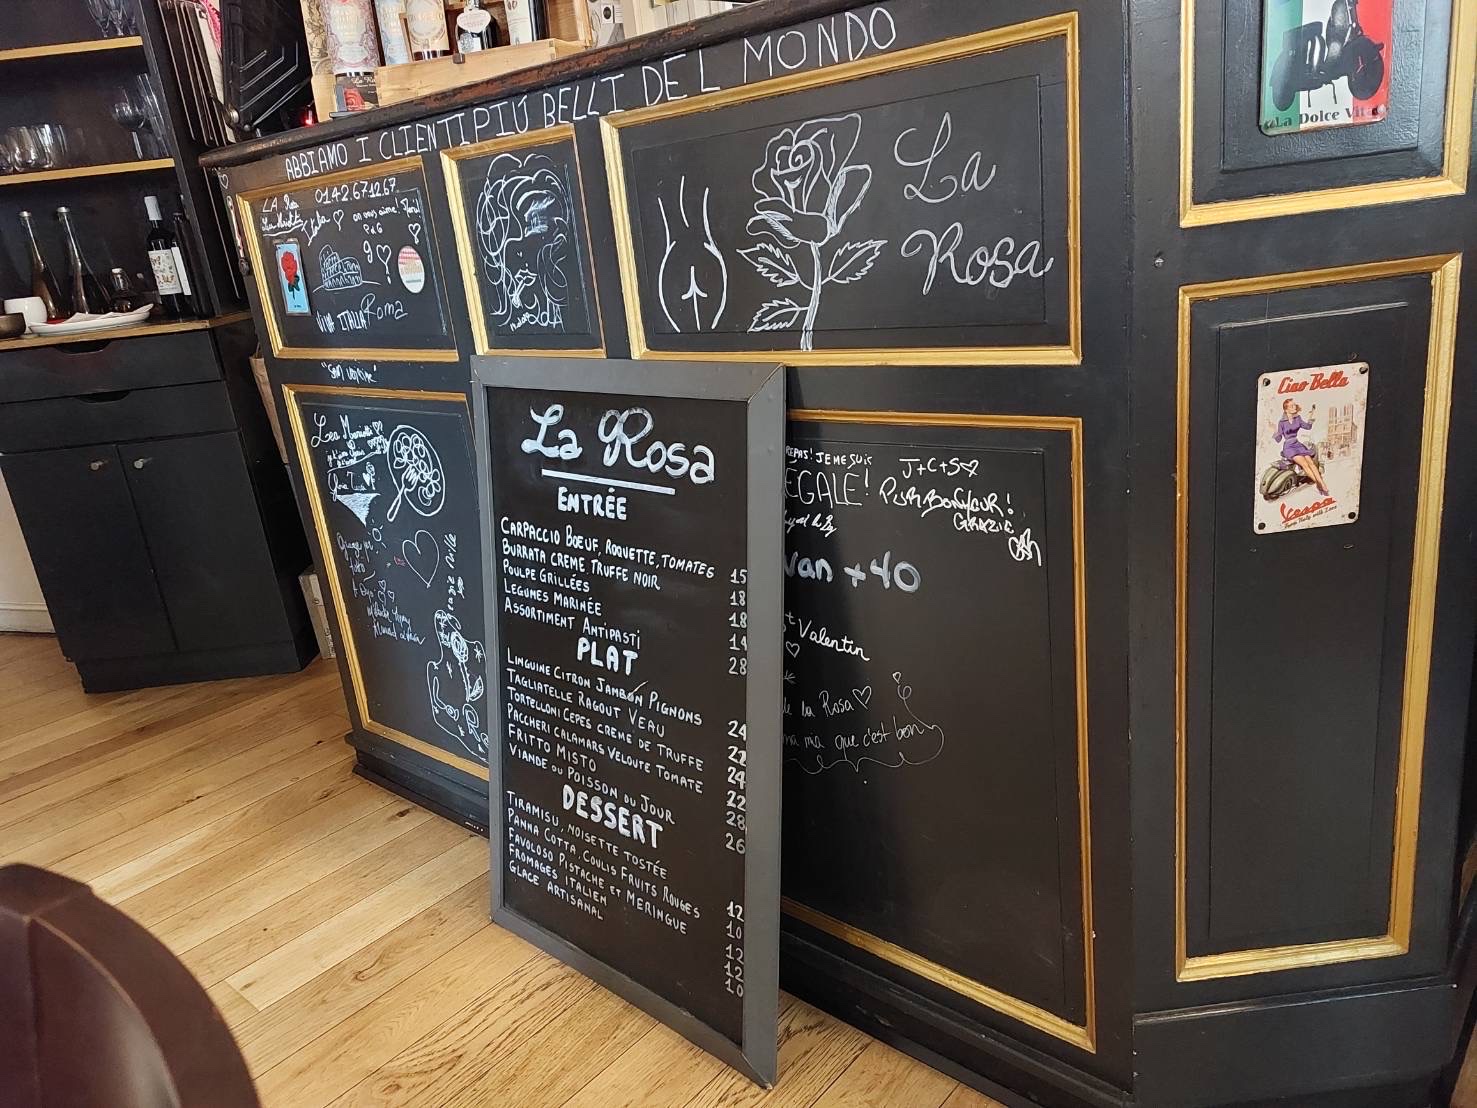 ABBIAMO I CLIENTI PIÚ BELLI DEL MONDO
La Dolce Vita
LA Rosa 01.42.67.12.67
Italia
on vous aime!
VIVA ITALIA Roma
La
Rosa
Ciao Bella
Vespa
La Rosa
ENTRÉE
CARPACCIO BOEUF, ROQUETTE, TOMATES 15
BURRATA CREME TRUFFE NOIR 18
POULPE GRILLÉES 18
LEGUMES MARINÉE 14
ASSORTIMENT ANTIPASTI 28
PLAT
LINGUINE CITRON JAMBON PIGNONS 24
TAGLIATELLE RAGOUT VEAU 22
TORTELLONI CEPES CREME DE TRUFFE 24
PACCHERI CALAMARS VELOUTE TOMATE 22
FRITTO MISTO 28
VIANDE OU POISSON DU JOUR 26
DESSERT
TIRAMISU, NOISETTE TOSTÉE 12
PANNA COTTA, COULIS FRUITS ROUGES 10
FAVOLOSO PISTACHE ET MERINGUE 12
FROMAGES ITALIEN 12
GLACE ARTISANAL 10
REPAS! JE ME SUIS
EGALÉ!
J+C+S
PUR BONHEUR!
GRAZIE
van + 40
St Valentin
de la Rosa
ma ma que c'est bon